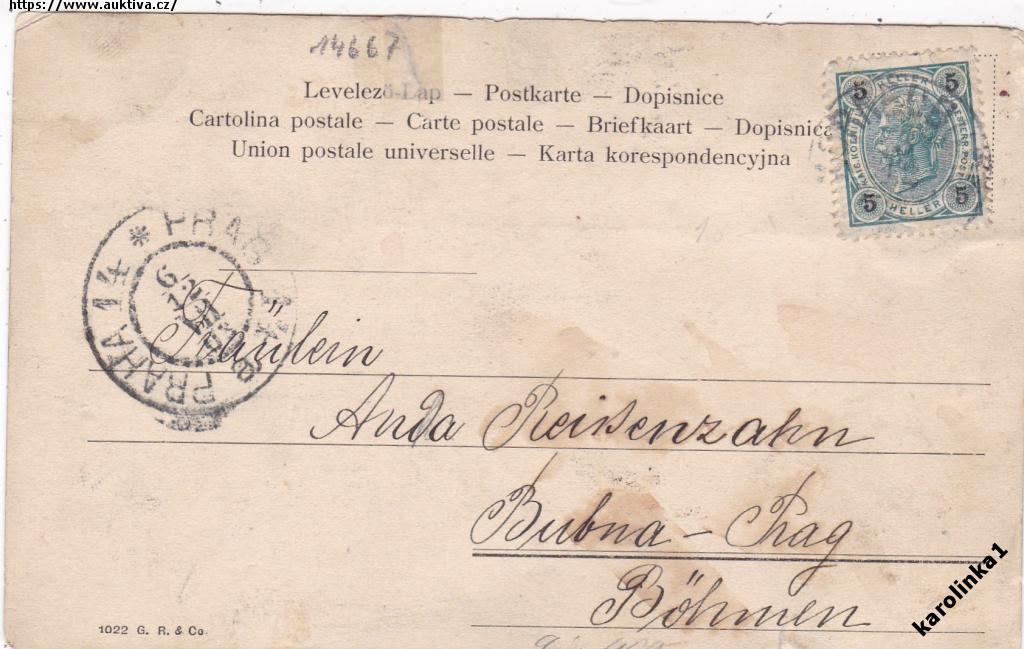 https://www.auktiva.cz/
14667
Levelező-Lap — Postkarte — Dopisnice
Cartolina postale — Carte postale — Briefkaart — Dopisnica
Union postale universelle — Karta korespondencyjna
5 HELLER 5
KAIS. KOENIGL. OESTERR. POST
5 HELLER 5
PRAHA 14 * PRAG 14
PRAHA
Fräulein
Anda Reißenzahn
Bubna – Prag
Böhmen
1022 G. R. & Co.
karolinka1